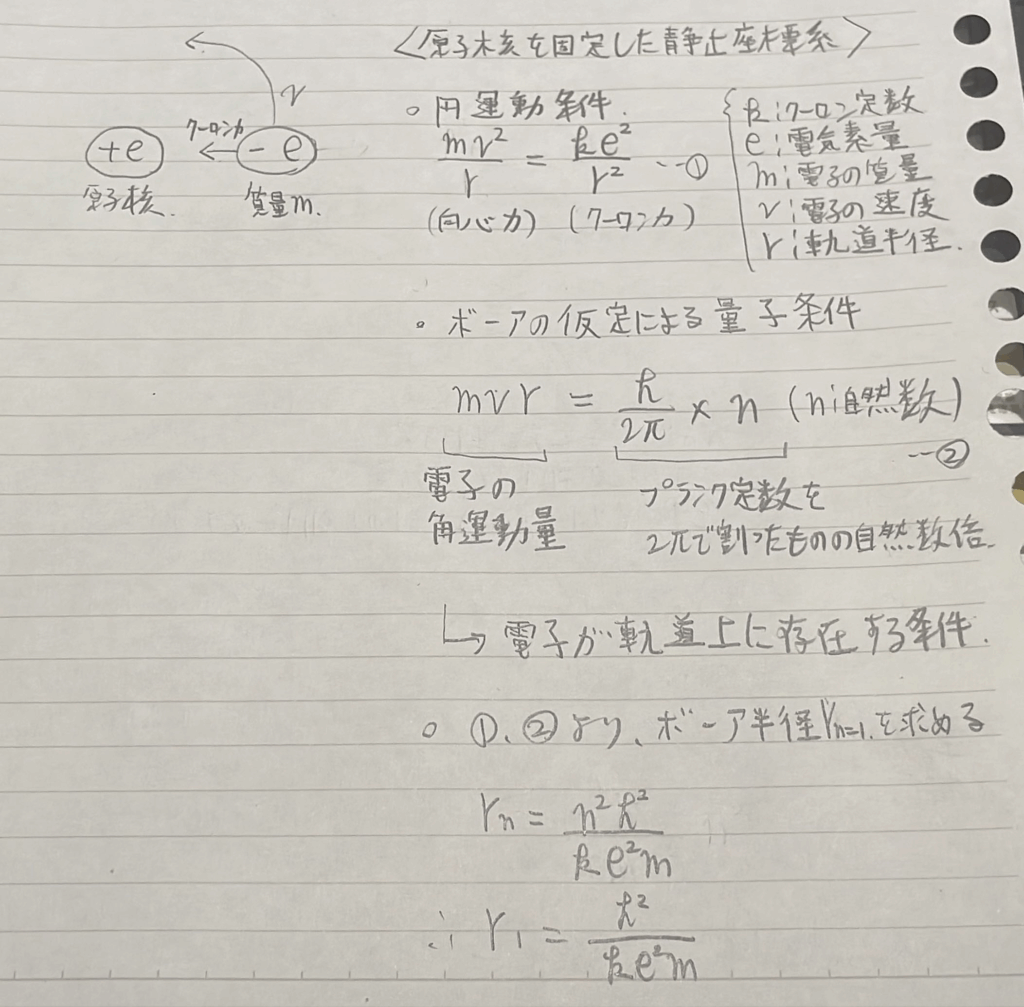 <原子核を固定した静止座標系>
v
クーロン力
+e
- e
原子核.
質量m.
○ 円運動条件.
mv²/r = ke²/r² …①
(向心力) (クーロン力)
k;クーロン定数
e;電気素量
m;電子の質量
v;電子の速度
r;軌道半径.
○ ボーアの仮定による量子条件
mvr = h/2π × n (n;自然数)
…②
電子の
角運動量
プランク定数を
2πで割ったものの自然数倍.
↳ 電子が軌道上に存在する条件.
○ ①、②より、ボーア半径rn=1.を求める
rn = n²ℏ²/ke²m
∴ r1 = ℏ²/ke²m